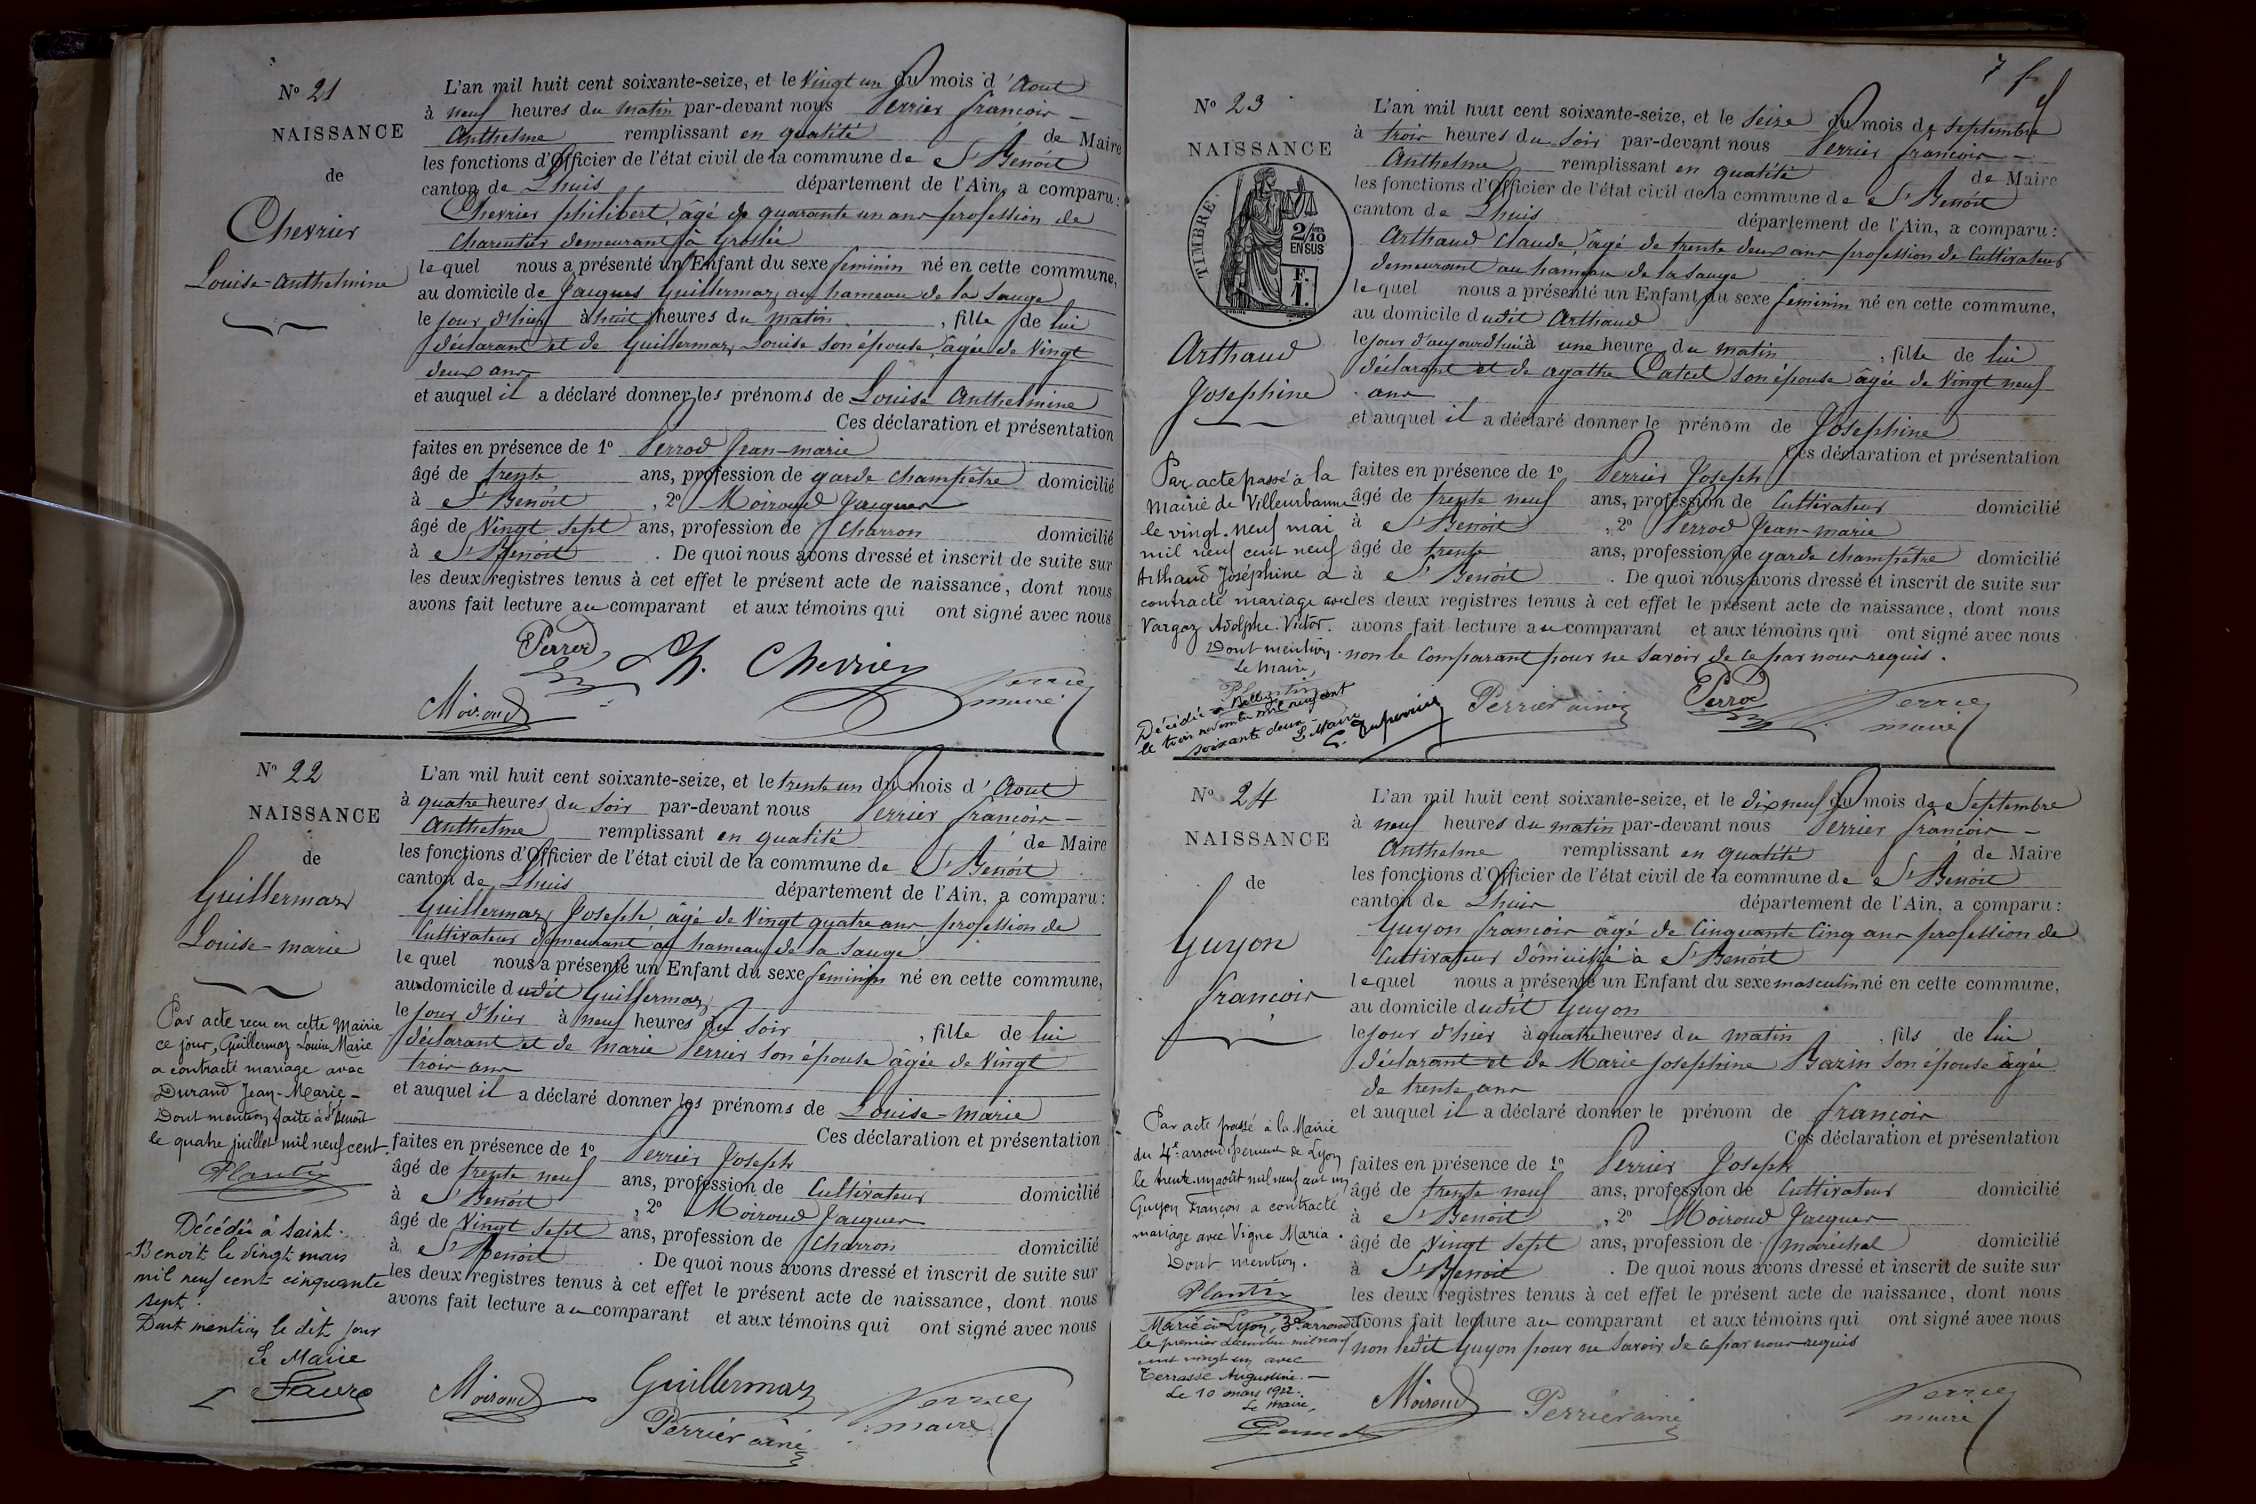 N° 21
NAISSANCE
de
Chevrier
Louise-Anthelmine
L'an mil huit cent soixante-seize, et le Vingt un du mois d'Aout
à neuf heures du matin par-devant nous Perrier françois -
Anthelme remplissant en qualité de Maire
les fonctions d'Officier de l'état civil de la commune de St Benoit
canton de Lhuis département de l'Ain, a comparu :
Chevrier philibert, âgé de quarante un ans profession de
Charcutier demeurant à Groslée
lequel nous a présenté un Enfant du sexe feminin né en cette commune,
au domicile de Jacques Guillermaz au hameau de la Sauge
le jour d'hier à huit heures du matin, fille de lui
déclarant et de Guillermaz Louise son épouse, âgée de Vingt
deux ans
et auquel il a déclaré donner les prénoms de Louise Anthelmine
Ces déclaration et présentation
faites en présence de 1° Perrod Jean-marie
âgé de trente ans, profession de garde champêtre domicilié
à St Benoit, 2° Moiroud Jacques
âgé de Vingt sept ans, profession de Charron domicilié
à St Benoit. De quoi nous avons dressé et inscrit de suite sur
les deux registres tenus à cet effet le présent acte de naissance, dont nous
avons fait lecture au comparant et aux témoins qui ont signé avec nous
Perrod Ph. Chevrier Perrier
Moiroud maire
N° 22
NAISSANCE
de
Guillermaz
Louise-marie
Par acte reçu en cette Mairie
ce jour, Guillermaz Louise Marie
a contracté mariage avec
Durand Jean-Marie -
Dont mention faite à St Benoit
le quatre juillet mil neuf cent.
Plantin
Décédée à Saint-
Benoît le vingt mars
mil neuf cent cinquante
sept.
Dont mention le dit jour
Le Maire
Faure
L'an mil huit cent soixante-seize, et le trente un du mois d'Aout
à quatre heures du Soir par-devant nous Perrier françois -
Anthelme remplissant en qualité de Maire
les fonctions d'Officier de l'état civil de la commune de St Benoit
canton de Lhuis département de l'Ain, a comparu :
Guillermaz Joseph âgé de Vingt quatre ans profession de
Cultivateur demeurant au hameau de la Sauge
lequel nous a présenté un Enfant du sexe feminin né en cette commune,
au domicile dudit Guillermaz
le jour d'hier à neuf heures du Soir, fille de lui
déclarant et de Marie Perrier son épouse âgée de Vingt
trois ans
et auquel il a déclaré donner les prénoms de Louise-marie
Ces déclaration et présentation
faites en présence de 1° Perrier Joseph
âgé de trente neuf ans, profession de Cultivateur domicilié
à St Benoit, 2° Moiroud Jacques
âgé de Vingt Sept ans, profession de Charron domicilié
à St Benoit. De quoi nous avons dressé et inscrit de suite sur
les deux registres tenus à cet effet le présent acte de naissance, dont nous
avons fait lecture au comparant et aux témoins qui ont signé avec nous
Moiroud Guillermaz Perrier
Perrier ainé maire
7
N° 23
NAISSANCE
TIMBRE.
2/10
EN SUS
F.
1.
Arthaud
Josephine
Par acte passé à la
Mairie de Villeurbanne
le vingt-neuf mai
mil neuf cent neuf
Arthaud Joséphine a
contracté mariage avec
Vargoz Adolphe-Victor.
Dont mention.
Le Maire,
Plantin
Décédée à
le trois novembre mil neuf cent
soixante deux
Le Maire
L'an mil huit cent soixante-seize, et le Seize du mois de Septembre
à trois heures du Soir par-devant nous Perrier françois -
Anthelme remplissant en qualité de Maire
les fonctions d'Officier de l'état civil de la commune de St Benoit
canton de Lhuis département de l'Ain, a comparu :
Arthaud Claude âgé de trente deux ans profession de Cultivateur
demeurant au hameau de la Sauge
lequel nous a présenté un Enfant du sexe feminin né en cette commune,
au domicile dudit Arthaud
le jour d'aujourdhui à une heure du matin, fille de lui
déclarant et de agathe Catud son épouse âgée de Vingt neuf
ans
et auquel il a déclaré donner le prénom de Josephine
Ces déclaration et présentation
faites en présence de 1° Perrier Joseph
âgé de trente neuf ans, profession de Cultivateur domicilié
à St Benoit, 2° Perrod Jean-marie
âgé de trente ans, profession de garde champêtre domicilié
à St Benoit. De quoi nous avons dressé et inscrit de suite sur
les deux registres tenus à cet effet le présent acte de naissance, dont nous
avons fait lecture au comparant et aux témoins qui ont signé avec nous
non le Comparant pour ne Savoir de ce par nous requis.
Perrier ainé Perrod Perrier
maire
N° 24
NAISSANCE
de
Guyon
françois
Par acte passé à la Mairie
du 4e arrondissement de Lyon
le trente un août mil neuf cent un
Guyon François a contracté
mariage avec Vigne Maria.
Dont mention.
Plantin
Marié à Lyon, 3e arrondt
le premier décembre mil neuf
cent vingt un avec
Terrasse Augustine. -
Le 10 mars 1922.
Le Maire,
L'an mil huit cent soixante-seize, et le dix neuf du mois de Septembre
à neuf heures du matin par-devant nous Perrier françois -
Anthelme remplissant en qualité de Maire
les fonctions d'Officier de l'état civil de la commune de St Benoit
canton de Lhuis département de l'Ain, a comparu :
Guyon françois âgé de Cinquante Cinq ans profession de
Cultivateur domicilié à St Benoit
lequel nous a présenté un Enfant du sexe masculin né en cette commune,
au domicile dudit Guyon
le jour d'hier à quatre heures du matin, fils de lui
déclarant et de Marie Josephine Bazin son épouse âgée
de trente ans
et auquel il a déclaré donner le prénom de françois
Ces déclaration et présentation
faites en présence de 1° Perrier Joseph
âgé de trente neuf ans, profession de Cultivateur domicilié
à St Benoit, 2° Moiroud Jacques
âgé de Vingt Sept ans, profession de maréchal domicilié
à St Benoit. De quoi nous avons dressé et inscrit de suite sur
les deux registres tenus à cet effet le présent acte de naissance, dont nous
avons fait lecture au comparant et aux témoins qui ont signé avec nous
non ledit Guyon pour ne Savoir de ce par nous requis
Moiroud Perrier ainé Perrier
maire